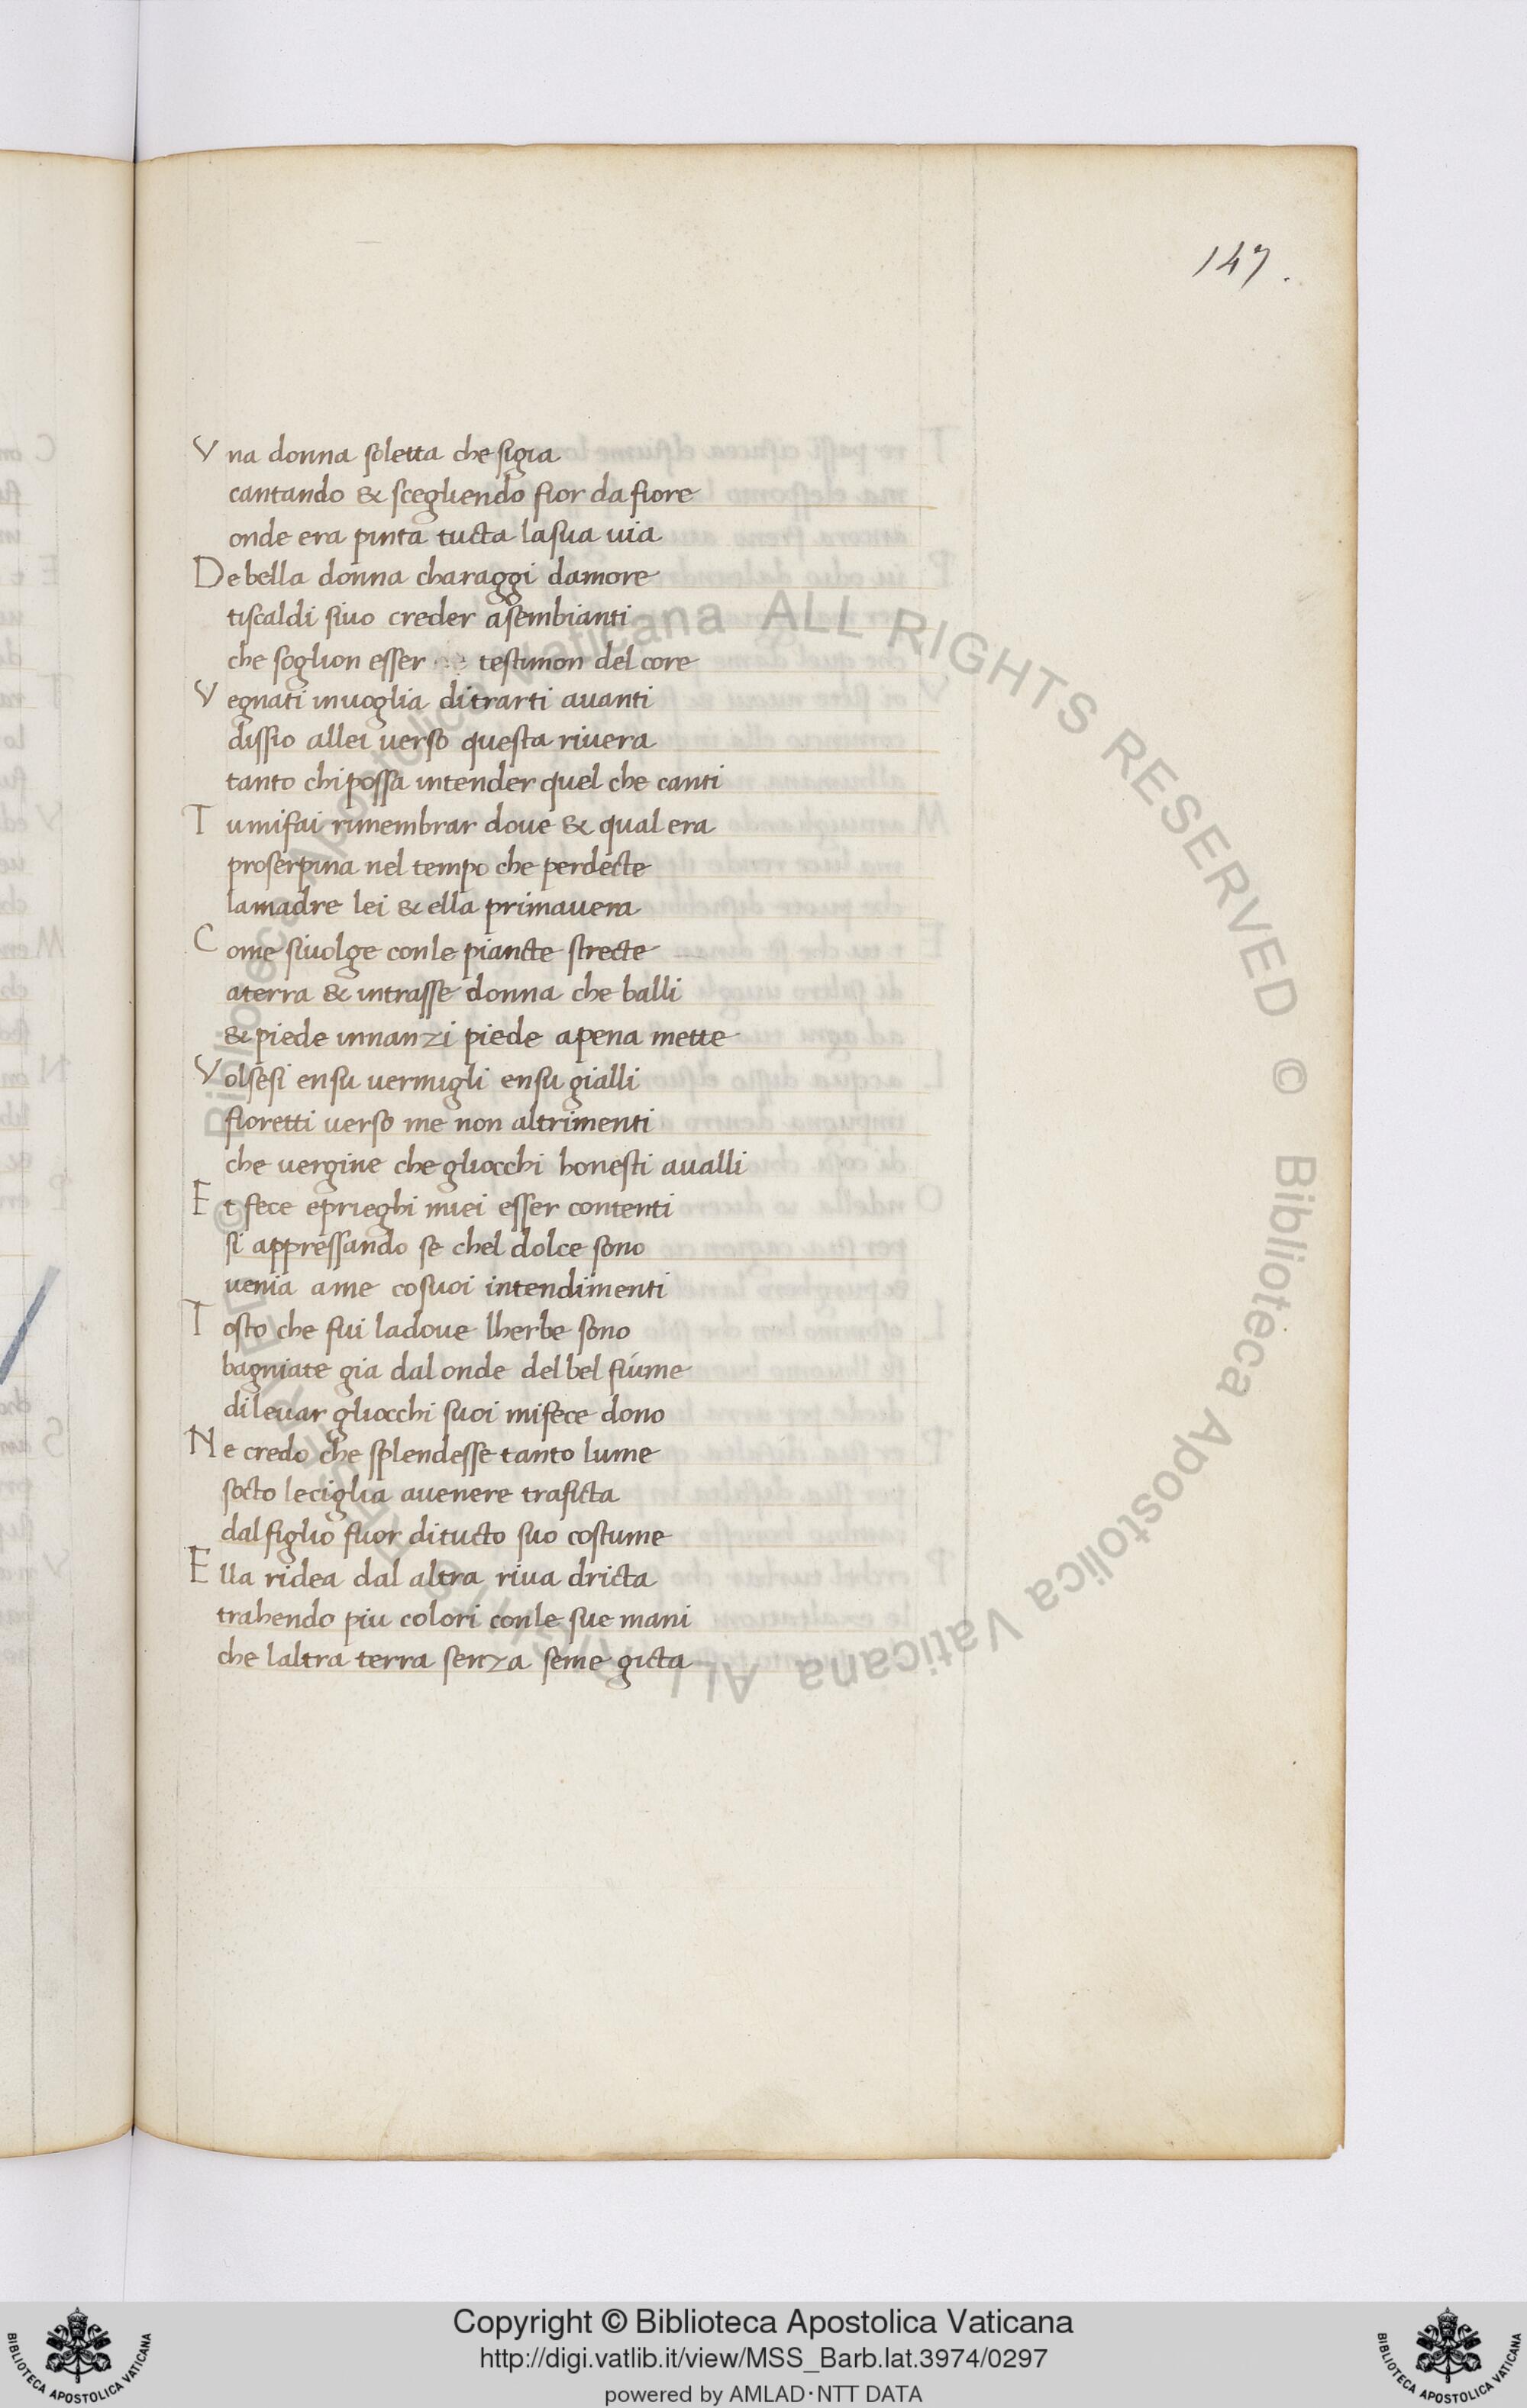 147.
Vna donna soletta che sigia
cantando & scegliendo fior da fiore
onde era pinta tucta lasua uia
De bella donna charaggi damore
tiscaldi siuo creder asembianti
che soglion esser testimon del core
Vegnati inuoglia ditrarti auanti
dissio allei uerso questa riuera
tanto chipossa intender quel che canti
Tumifai rimembrar doue & qual era
proserpina nel tempo che perdecte
lamadre lei & ella primauera
Come siuolge conle piancte strecte
aterra & intrasse donna che balli
& piede innanzi piede apena mette
Volsesi ensu uermigli ensu gialli
fioretti uerso me non altrimenti
che uergine che gliocchi honesti aualli
Et fece eprieghi miei esser contenti
si appressando se chel dolce sono
uenia ame cosuoi intendimenti
Tosto che fui ladoue lherbe sono
bagniate gia dal onde del bel fiume
dileuar gliocchi suoi mifece dono
Ne credo che splendesse tanto lume
socto leciglia auenere traficta
dalfiglio fuor ditucto suo costume
Ella ridea dal altra riua dricta
trahendo piu colori conle sue mani
che laltra terra senza seme gicta
Biblioteca Apostolica Vaticana ALL RIGHTS RESERVED © Biblioteca Apostolica Vaticana ALL RIGHTS RESERVED ©
Copyright © Biblioteca Apostolica Vaticana
http://digi.vatlib.it/view/MSS_Barb.lat.3974/0297
powered by AMLAD·NTT DATA
BIBLIOTECA APOSTOLICA VATICANA
BIBLIOTECA APOSTOLICA VATICANA